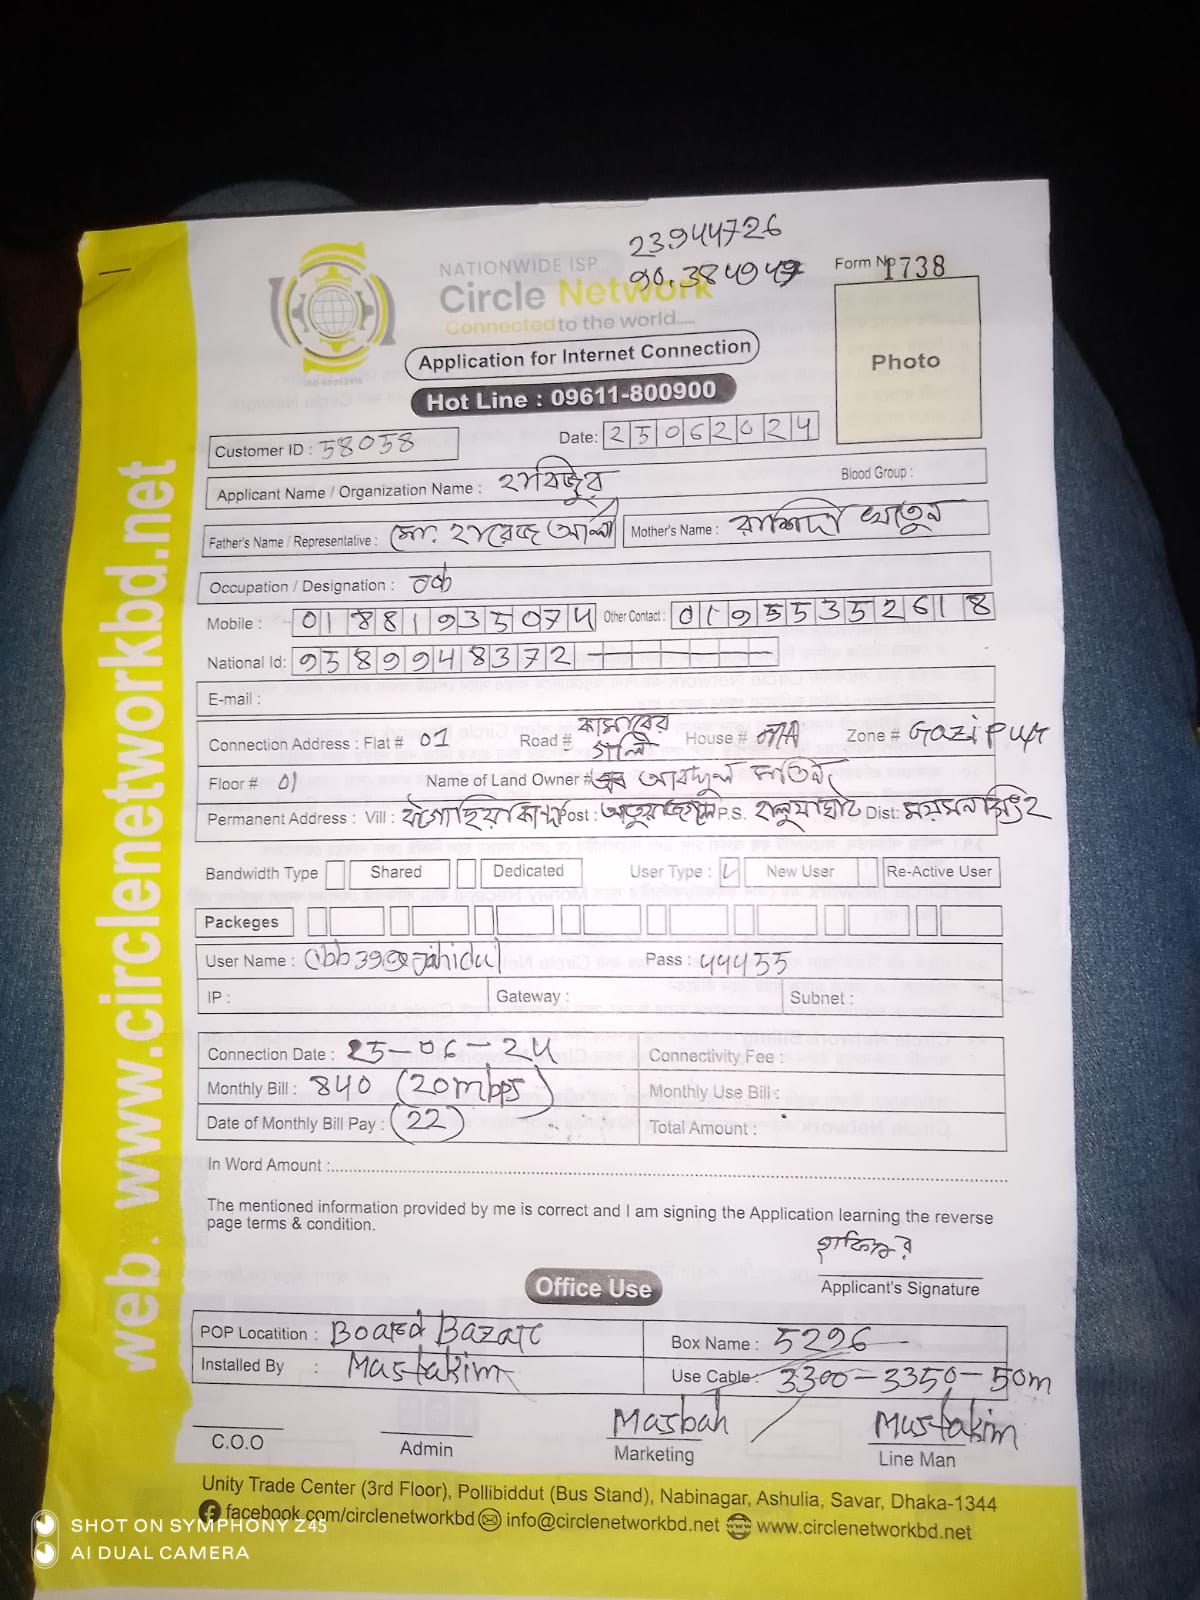 23.944726
90.384947
NATIONWIDE ISP
Circle Network
Connected to the world.....
Form No 1738
Photo
Application for Internet Connection
Hot Line : 09611-800900
Customer ID : 58058
Date: 25062024
Applicant Name / Organization Name : হাবিজুর
Blood Group :
Father's Name / Representative : মো. হারেজ আলী
Mother's Name : রাশিদা খাতুন
Occupation / Designation : Job
Mobile : 01881935074 Other Contact : 01955352618
National Id: 9589948372
E-mail :
Connection Address : Flat # 01 Road # কামারের গালী House # N/A Zone # Gazipur
Floor # 01 Name of Land Owner # আবদুল মতিন
Permanent Address : Vill : Post : P.S. হালুয়াঘাট Dist: ময়মনসিংহ
Bandwidth Type Shared Dedicated User Type : New User Re-Active User
Packeges
User Name : cbb39@jahidul Pass : 44455
IP : Gateway : Subnet :
Connection Date : 25-06-24 Connectivity Fee :
Monthly Bill : 840 (20mbps) Monthly Use Bill :
Date of Monthly Bill Pay : (22) Total Amount :
In Word Amount :
The mentioned information provided by me is correct and I am signing the Application learning the reverse
page terms & condition.
Applicant's Signature
Office Use
POP Locatition : Board Bazar Box Name : 5296
Installed By : Mastakim Use Cable : 3300-3350-50m
C.O.O
Admin
Masbah
Marketing
Mustakim
Line Man
Unity Trade Center (3rd Floor), Pollibiddut (Bus Stand), Nabinagar, Ashulia, Savar, Dhaka-1344
facebook.com/circlenetworkbd info@circlenetworkbd.net www.circlenetworkbd.net
web. www.circlenetworkbd.net
SHOT ON SYMPHONY Z45
AI DUAL CAMERA